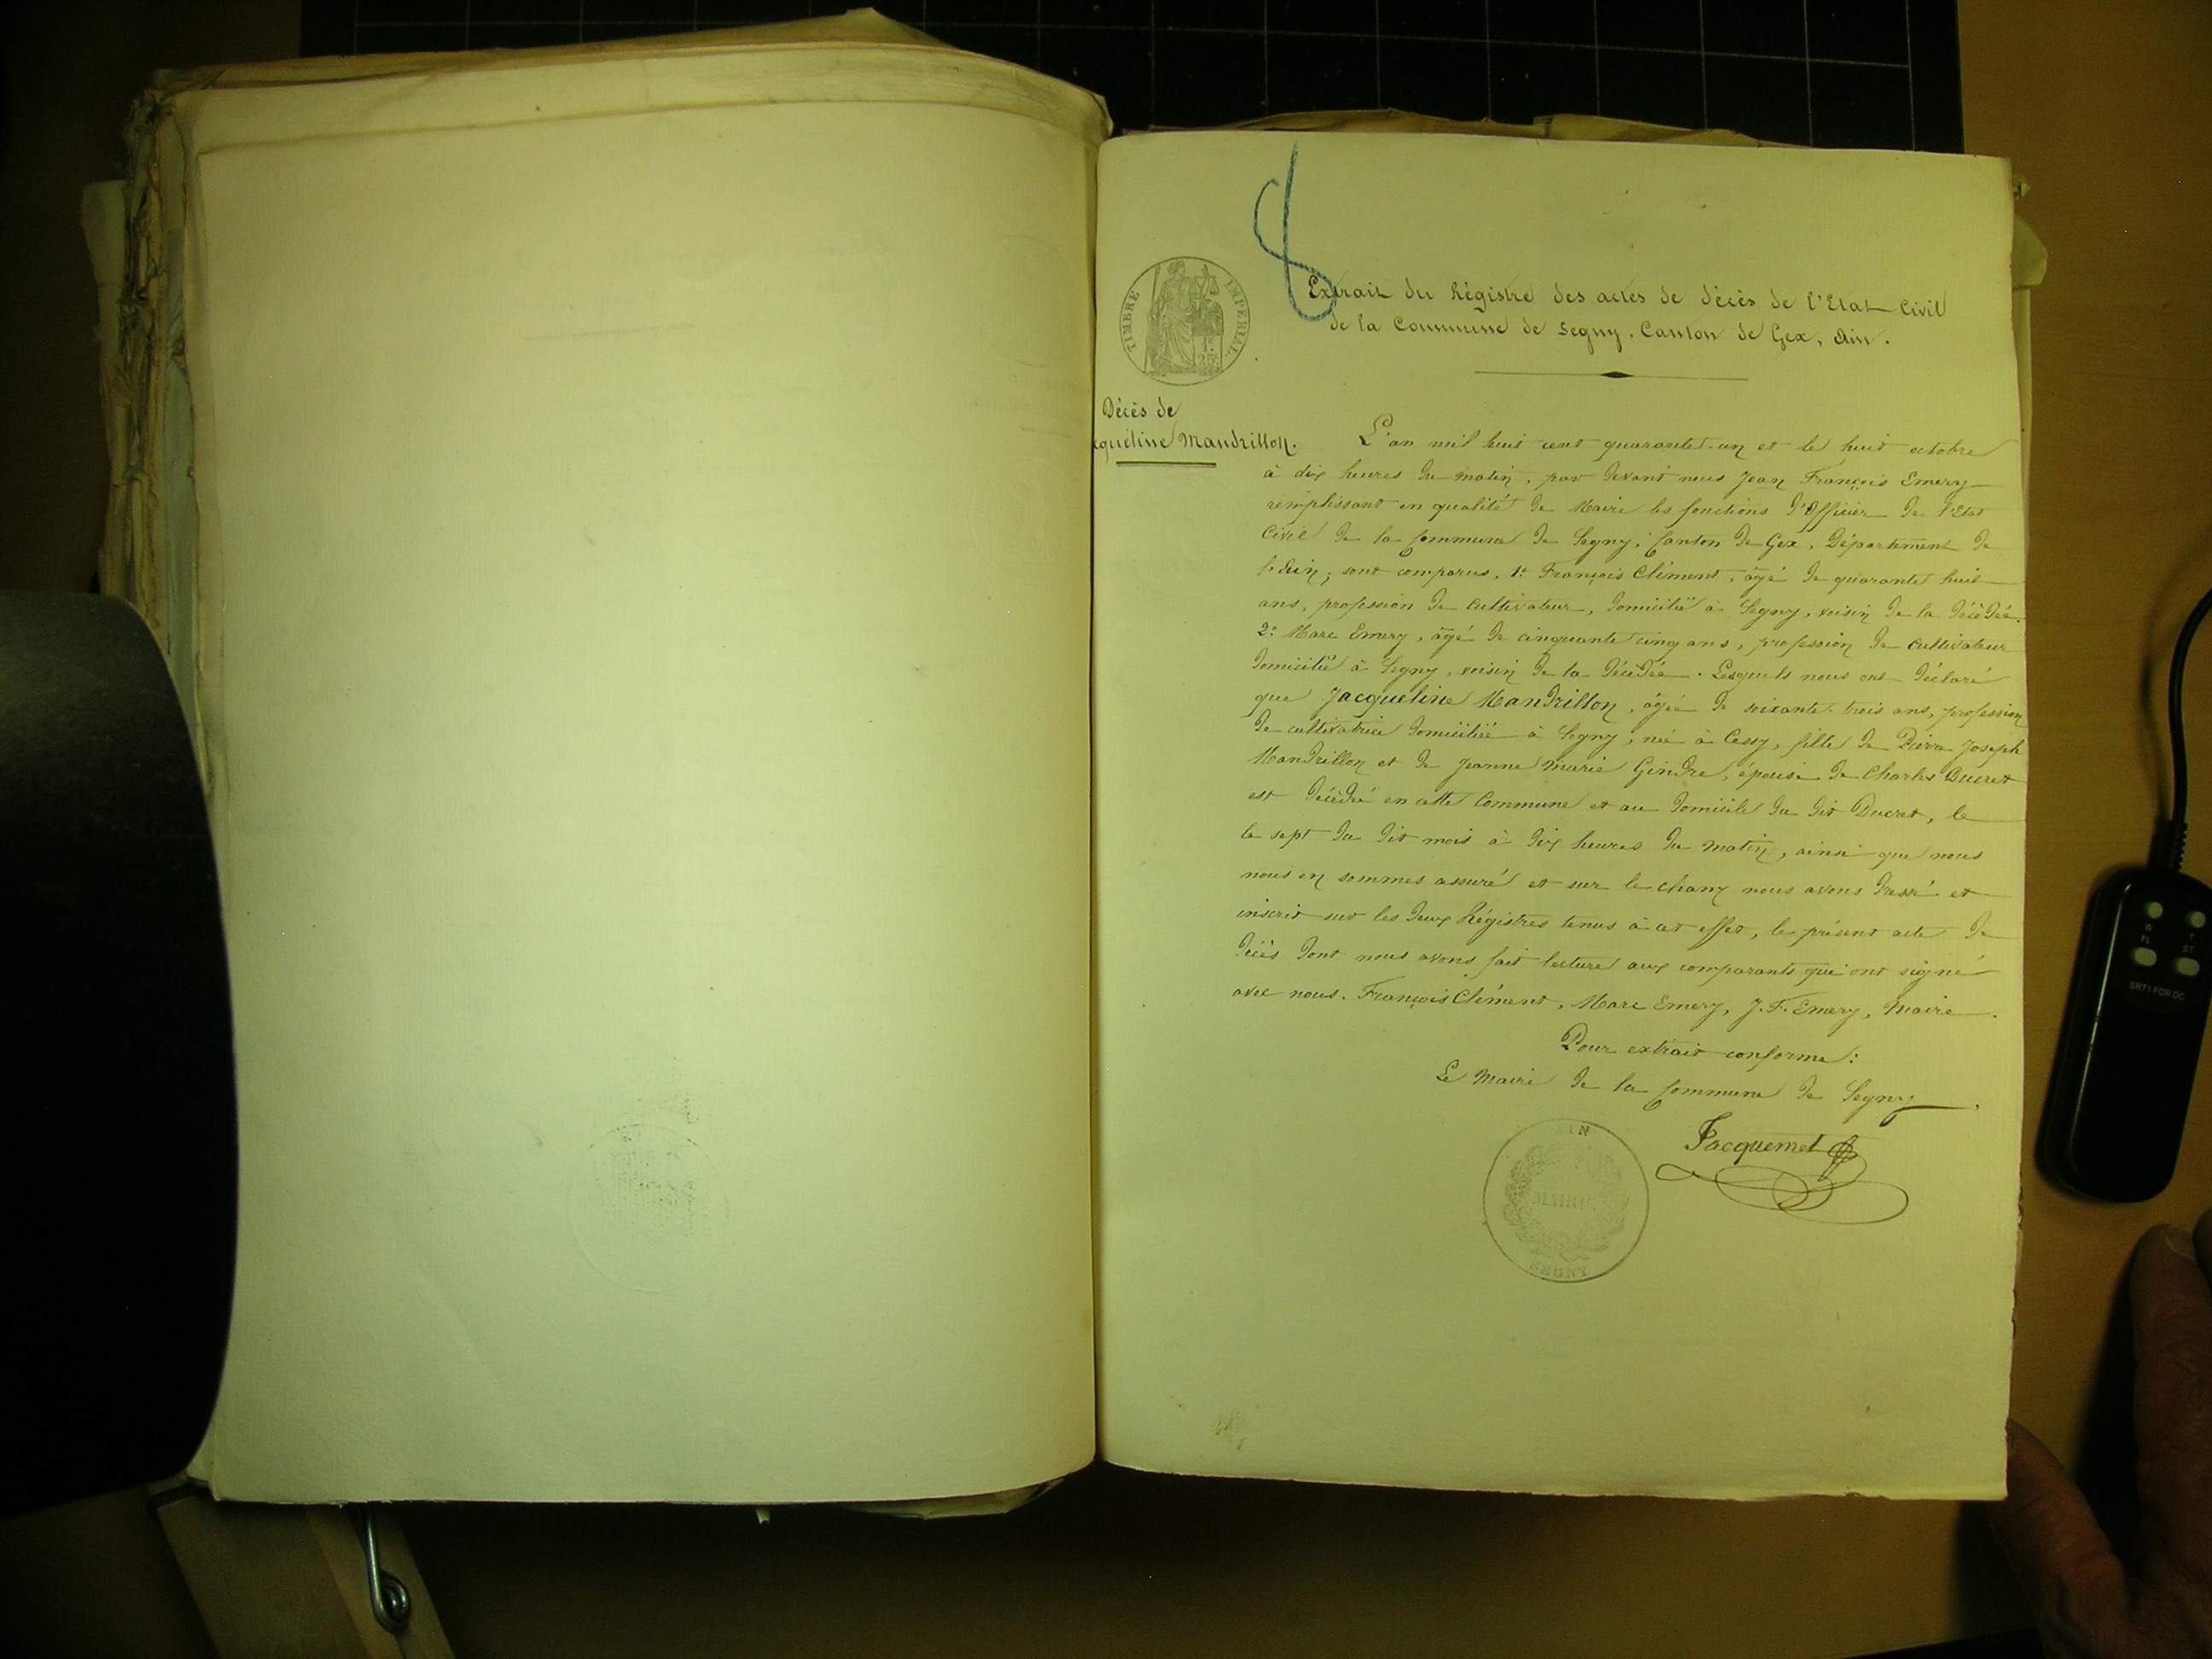 8
TIMBRE IMPERIAL
1F
25C
Extrait du Régistre des actes de décès de l'Etat Civil
de la Commune de Segny, Canton de Gex, Ain.
Décès de
cqueline Mandrillon.
L'an mil huit cent quarante-un et le huit octobre
à dix heures du matin, par devant nous Jean François Emery
remplissant en qualité de Maire les fonctions d'Officier de l'Etat
Civil de la Commune de Segny, Canton de Gex, Département de
l'Ain; sont comparus, 1° François Clément, âgé de quarante huit
ans, profession de Cultivateur, domicilié à Segny, voisin de la décédée.
2° Marc Emery, âgé de cinquante cinq ans, profession de cultivateur
domicilié à Segny, voisin de la décédée. Lesquels nous ont déclaré
que Jacqueline Mandrillon, âgée de soixante-trois ans, profession
de cultivatrice domiciliée à Segny, née à Cessy, fille de Pierre Joseph
Mandrillon et de Jeanne Marie Gindre, épouse de Charles Ducret
est décédée en cette Commune et au domicile du dit Ducret, le
le sept du dit mois à dix heures du matin, ainsi que nous
nous en sommes assuré et sur le champ nous avons dressé et
inscrit sur les deux Régistres tenus à cet effet, le présent acte de
décès dont nous avons fait lecture aux comparants qui ont signé
avec nous. François Clément, Marc Emery, J. F. Emery, Maire.
Pour extrait conforme:
Le Maire de la Commune de Segny
Jacquemet
AIN
MAIRIE
SEGNY
W T
FL ST
SRT I FOR DC